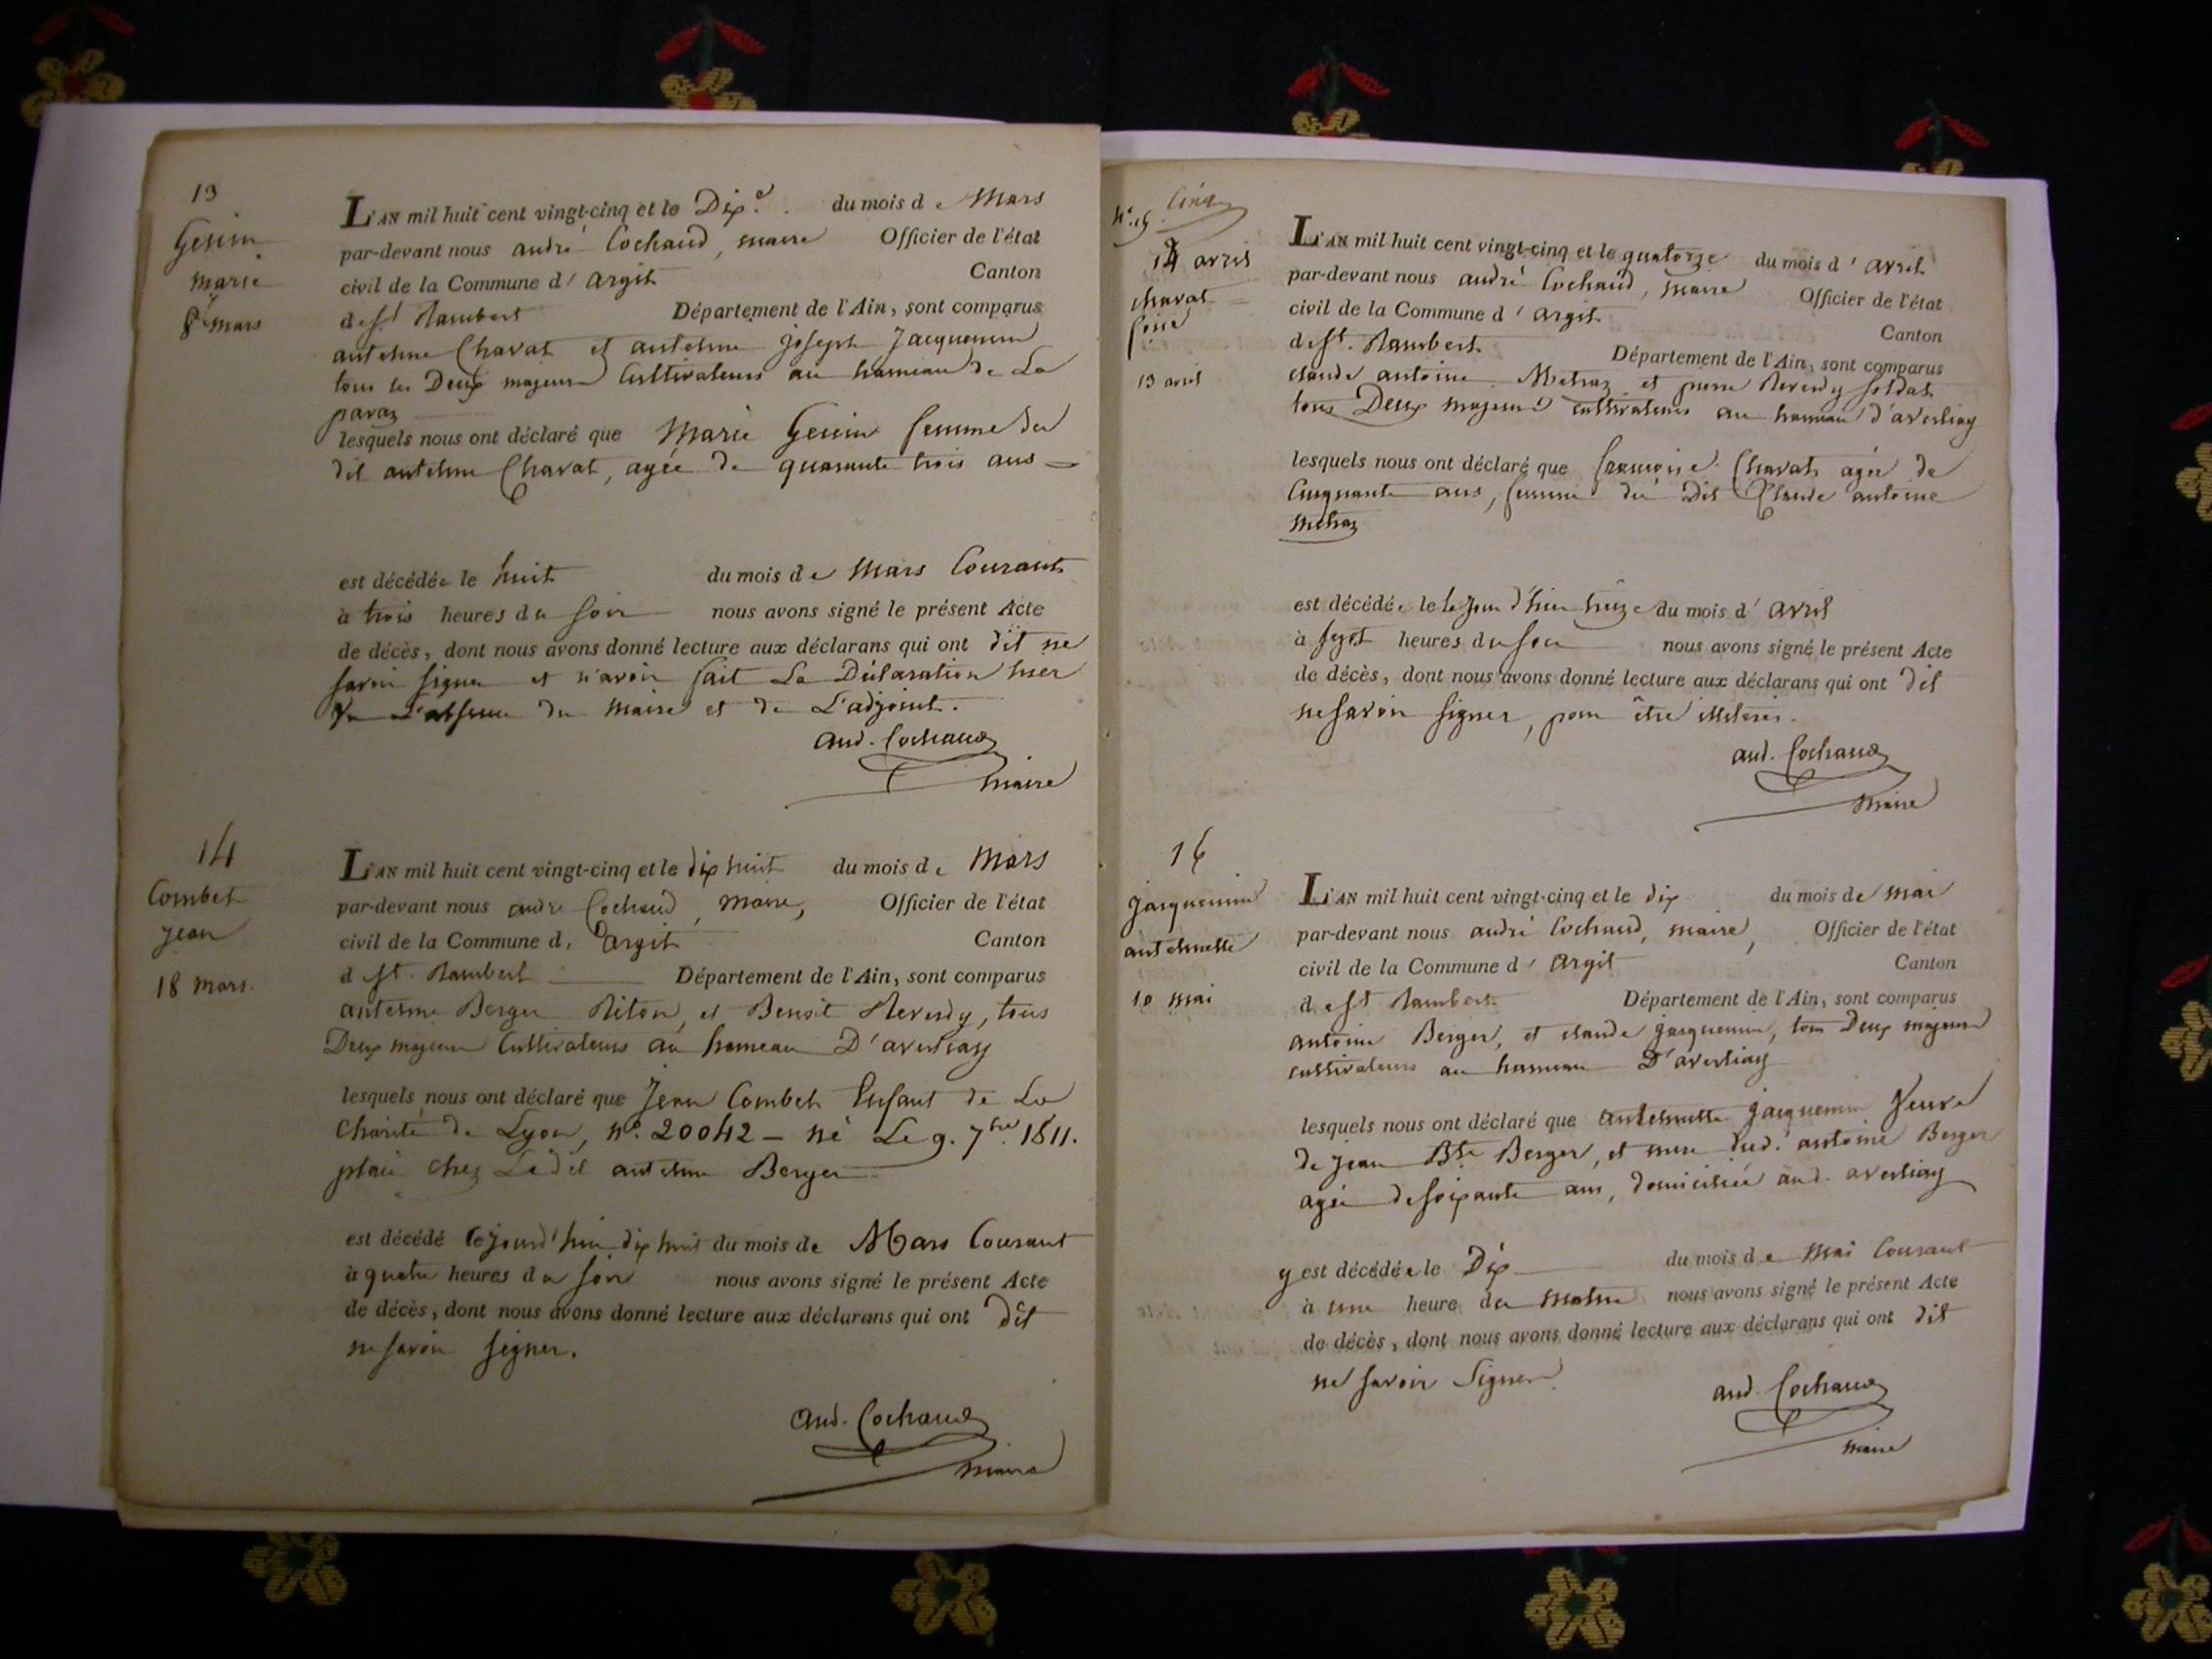 13
Genin
Marie
8 mars
L'AN mil huit cent vingt-cinq et le Dix du mois de Mars
par-devant nous andré Cochaud, maire Officier de l'état
civil de la Commune d'argit Canton
de St Rambert Département de l'Ain, sont comparus
antelme Chavat et antelme joseph Jacquemin
tous les Deux majeurs Cultivateurs au hameau de La
paraz
lesquels nous ont déclaré que Marie Genin femme du
dit antelme Chavat, agée de quarante trois ans
est décédée le huit du mois de Mars Courant
à trois heures du soir nous avons signé le présent Acte
de décès, dont nous avons donné lecture aux déclarans qui ont dit ne
savoir signer et n'avoir fait La Déclaration hier
vu L'absence du maire et de L'adjoint.
and. Cochaud
maire
14
Combet
jean
18 mars.
L'AN mil huit cent vingt-cinq et le dix huit du mois de Mars
par-devant nous andré Cochaud, maire, Officier de l'état
civil de la Commune d'argit Canton
de St. Rambert Département de l'Ain, sont comparus
antelme Berger Riton, et Benoit Reverdy, tous
Deux majeurs Cultivateurs au hameau D'averliay
lesquels nous ont déclaré que Jean Combet Enfant de La
Charité de Lyon, n.° 20042 - né Le 9. 7bre 1811.
placé chez Le dit antelme Berger
est décédé cejourd'hui dix huit du mois de Mars Courant
à quatre heures du soir nous avons signé le présent Acte
de décès, dont nous avons donné lecture aux déclarans qui ont Dit
ne savoir signer.
and. Cochaud
maire
n.° 15
14 avril
chavat
13 avril
L'AN mil huit cent vingt-cinq et le quatorze du mois d'avril
par-devant nous andré Cochaud, maire Officier de l'état
civil de la Commune d'argit Canton
de St. Rambert Département de l'Ain, sont comparus
claude antoine Metraz et pierre Reverdy soldat
tous Deux majeurs cultivateurs au hameau d'averliay
lesquels nous ont déclaré que françoise Chavat agée de
Cinquante ans, femme du Dit Claude antoine
Metraz
est décédée le le jour d'hier treize du mois d'avril
à sept heures du soir nous avons signé le présent Acte
de décès, dont nous avons donné lecture aux déclarans qui ont dit
ne savoir signer, pour être illiterés.
and. Cochaud
maire
16
jacquemin
antelmette
10 mai
L'AN mil huit cent vingt-cinq et le dix du mois de mai
par-devant nous andré Cochaud, maire, Officier de l'état
civil de la Commune d'argit Canton
de St Rambert Département de l'Ain, sont comparus
antoine Berger, et claude jacquemin, tous Deux majeurs
cultivateurs au hameau D'averliay
lesquels nous ont déclaré que antelmette jacquemin Veuve
de jean Bte Berger, et mere dud. antoine Berger
agée de soixante ans, domiciliée aud. averliay
y est décédée le Dix du mois de Mai Courant
à une heure du matin nous avons signé le présent Acte
de décès, dont nous avons donné lecture aux déclarans qui ont dit
ne savoir signer
and. Cochaud
maire